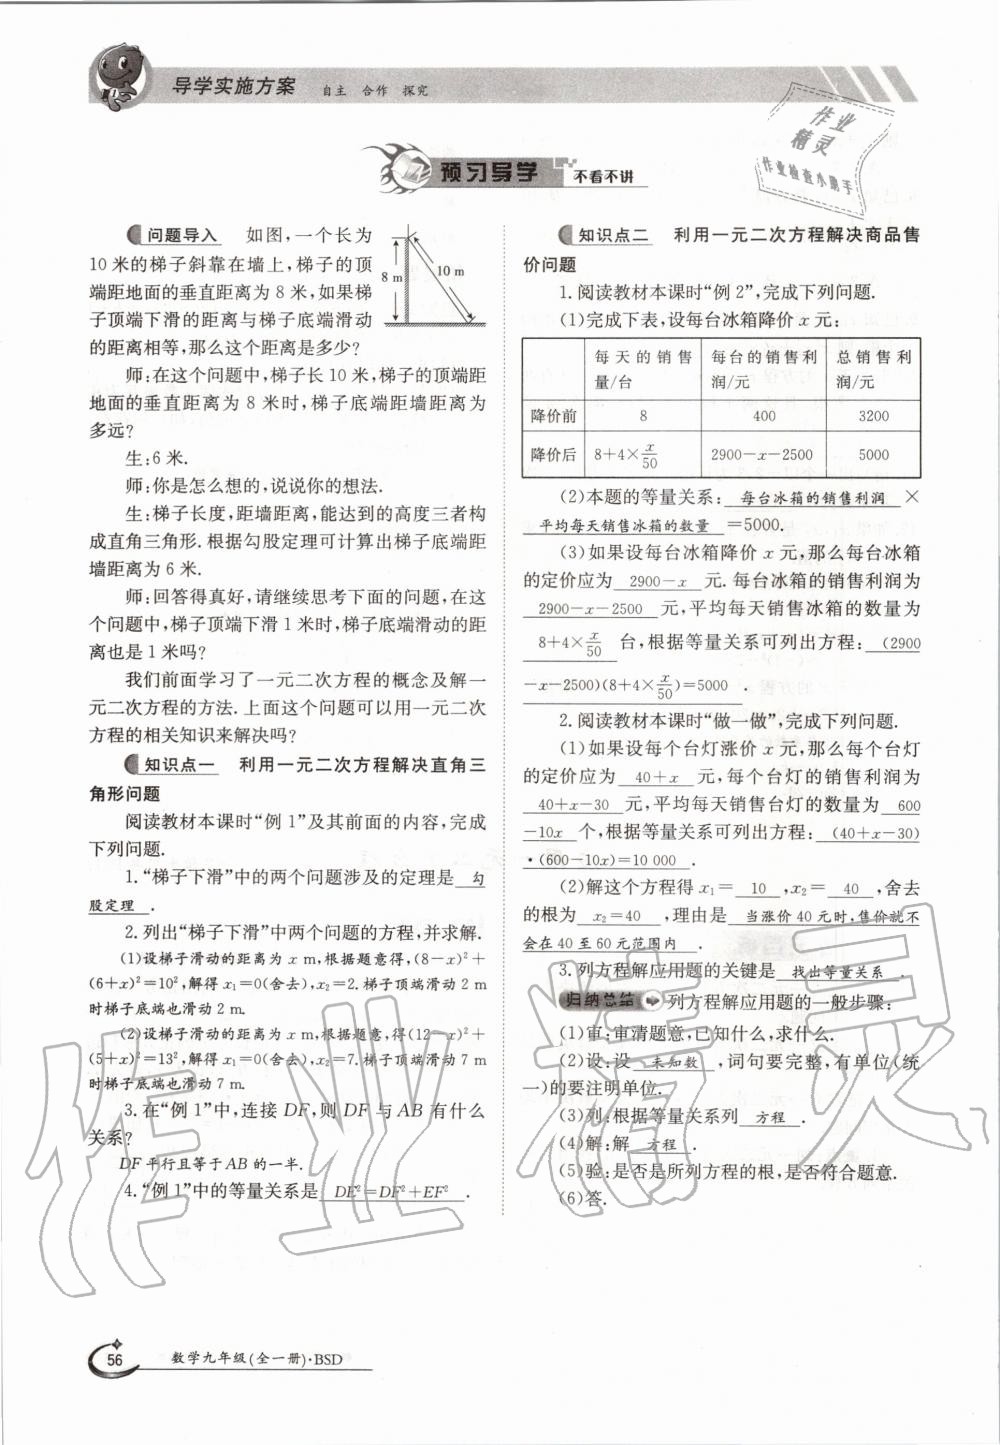 导学实施方案 自主 合作 探究
作业
精灵
作业检查小助手
预习导学 不看不讲
问题导入 如图,一个长为
10米的梯子斜靠在墙上,梯子的顶
端距地面的垂直距离为8米,如果梯
子顶端下滑的距离与梯子底端滑动
的距离相等,那么这个距离是多少?
8 m
10 m
师:在这个问题中,梯子长10米,梯子的顶端距
地面的垂直距离为8米时,梯子底端距墙距离为
多远?
生:6米.
师:你是怎么想的,说说你的想法.
生:梯子长度,距墙距离,能达到的高度三者构
成直角三角形.根据勾股定理可计算出梯子底端距
墙距离为6米.
师:回答得真好,请继续思考下面的问题,在这
个问题中,梯子顶端下滑1米时,梯子底端滑动的距
离也是1米吗?
我们前面学习了一元二次方程的概念及解一
元二次方程的方法.上面这个问题可以用一元二次
方程的相关知识来解决吗?
知识点一 利用一元二次方程解决直角三
角形问题
阅读教材本课时“例1”及其前面的内容,完成
下列问题.
1.“梯子下滑”中的两个问题涉及的定理是 勾
股定理 .
2.列出“梯子下滑”中两个问题的方程,并求解.
(1)设梯子滑动的距离为x m,根据题意得,(8-x)²+
(6+x)²=10²,解得x₁=0(舍去),x₂=2.梯子顶端滑动2 m
时梯子底端也滑动2 m.
(2)设梯子滑动的距离为x m,根据题意,得(12-x)²+
(5+x)²=13²,解得x₁=0(舍去),x₂=7.梯子顶端滑动7 m
时梯子底端也滑动7 m.
3.在“例1”中,连接DF,则DF与AB有什么
关系?
DF平行且等于AB的一半.
4.“例1”中的等量关系是 DE²=DF²+EF² .
知识点二 利用一元二次方程解决商品售
价问题
1.阅读教材本课时“例2”,完成下列问题.
(1)完成下表,设每台冰箱降价x元:
每天的销售量/台 每台的销售利润/元 总销售利润/元
降价前 8 400 3200
降价后 8+4×x/50 2900-x-2500 5000
(2)本题的等量关系: 每台冰箱的销售利润 ×
平均每天销售冰箱的数量 =5000.
(3)如果设每台冰箱降价x元,那么每台冰箱
的定价应为 2900-x 元.每台冰箱的销售利润为
2900-x-2500 元,平均每天销售冰箱的数量为
8+4×x/50 台,根据等量关系可列出方程: (2900
-x-2500)(8+4×x/50)=5000 .
2.阅读教材本课时“做一做”,完成下列问题.
(1)如果设每个台灯涨价x元,那么每个台灯
的定价应为 40+x 元,每个台灯的销售利润为
40+x-30 元,平均每天销售台灯的数量为 600
-10x 个,根据等量关系可列出方程: (40+x-30)
·(600-10x)=10 000 .
(2)解这个方程得x₁= 10 ,x₂= 40 ,舍去
的根为 x₂=40 ,理由是 当涨价40元时,售价就不
会在40至60元范围内 .
3.列方程解应用题的关键是 找出等量关系 .
归纳总结 列方程解应用题的一般步骤:
(1)审:审清题意,已知什么,求什么.
(2)设:设 未知数 ,词句要完整,有单位(统
一)的要注明单位.
(3)列:根据等量关系列 方程 .
(4)解:解 方程 .
(5)验:是否是所列方程的根,是否符合题意.
(6)答.
作业精灵
56 数学九年级(全一册)·BSD